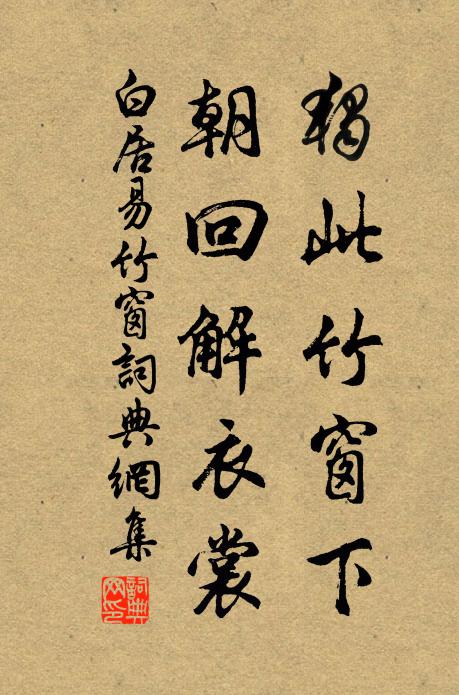 獨此竹窗下
朝回解衣裳
白居易竹窗詞典網集
詞典
网印